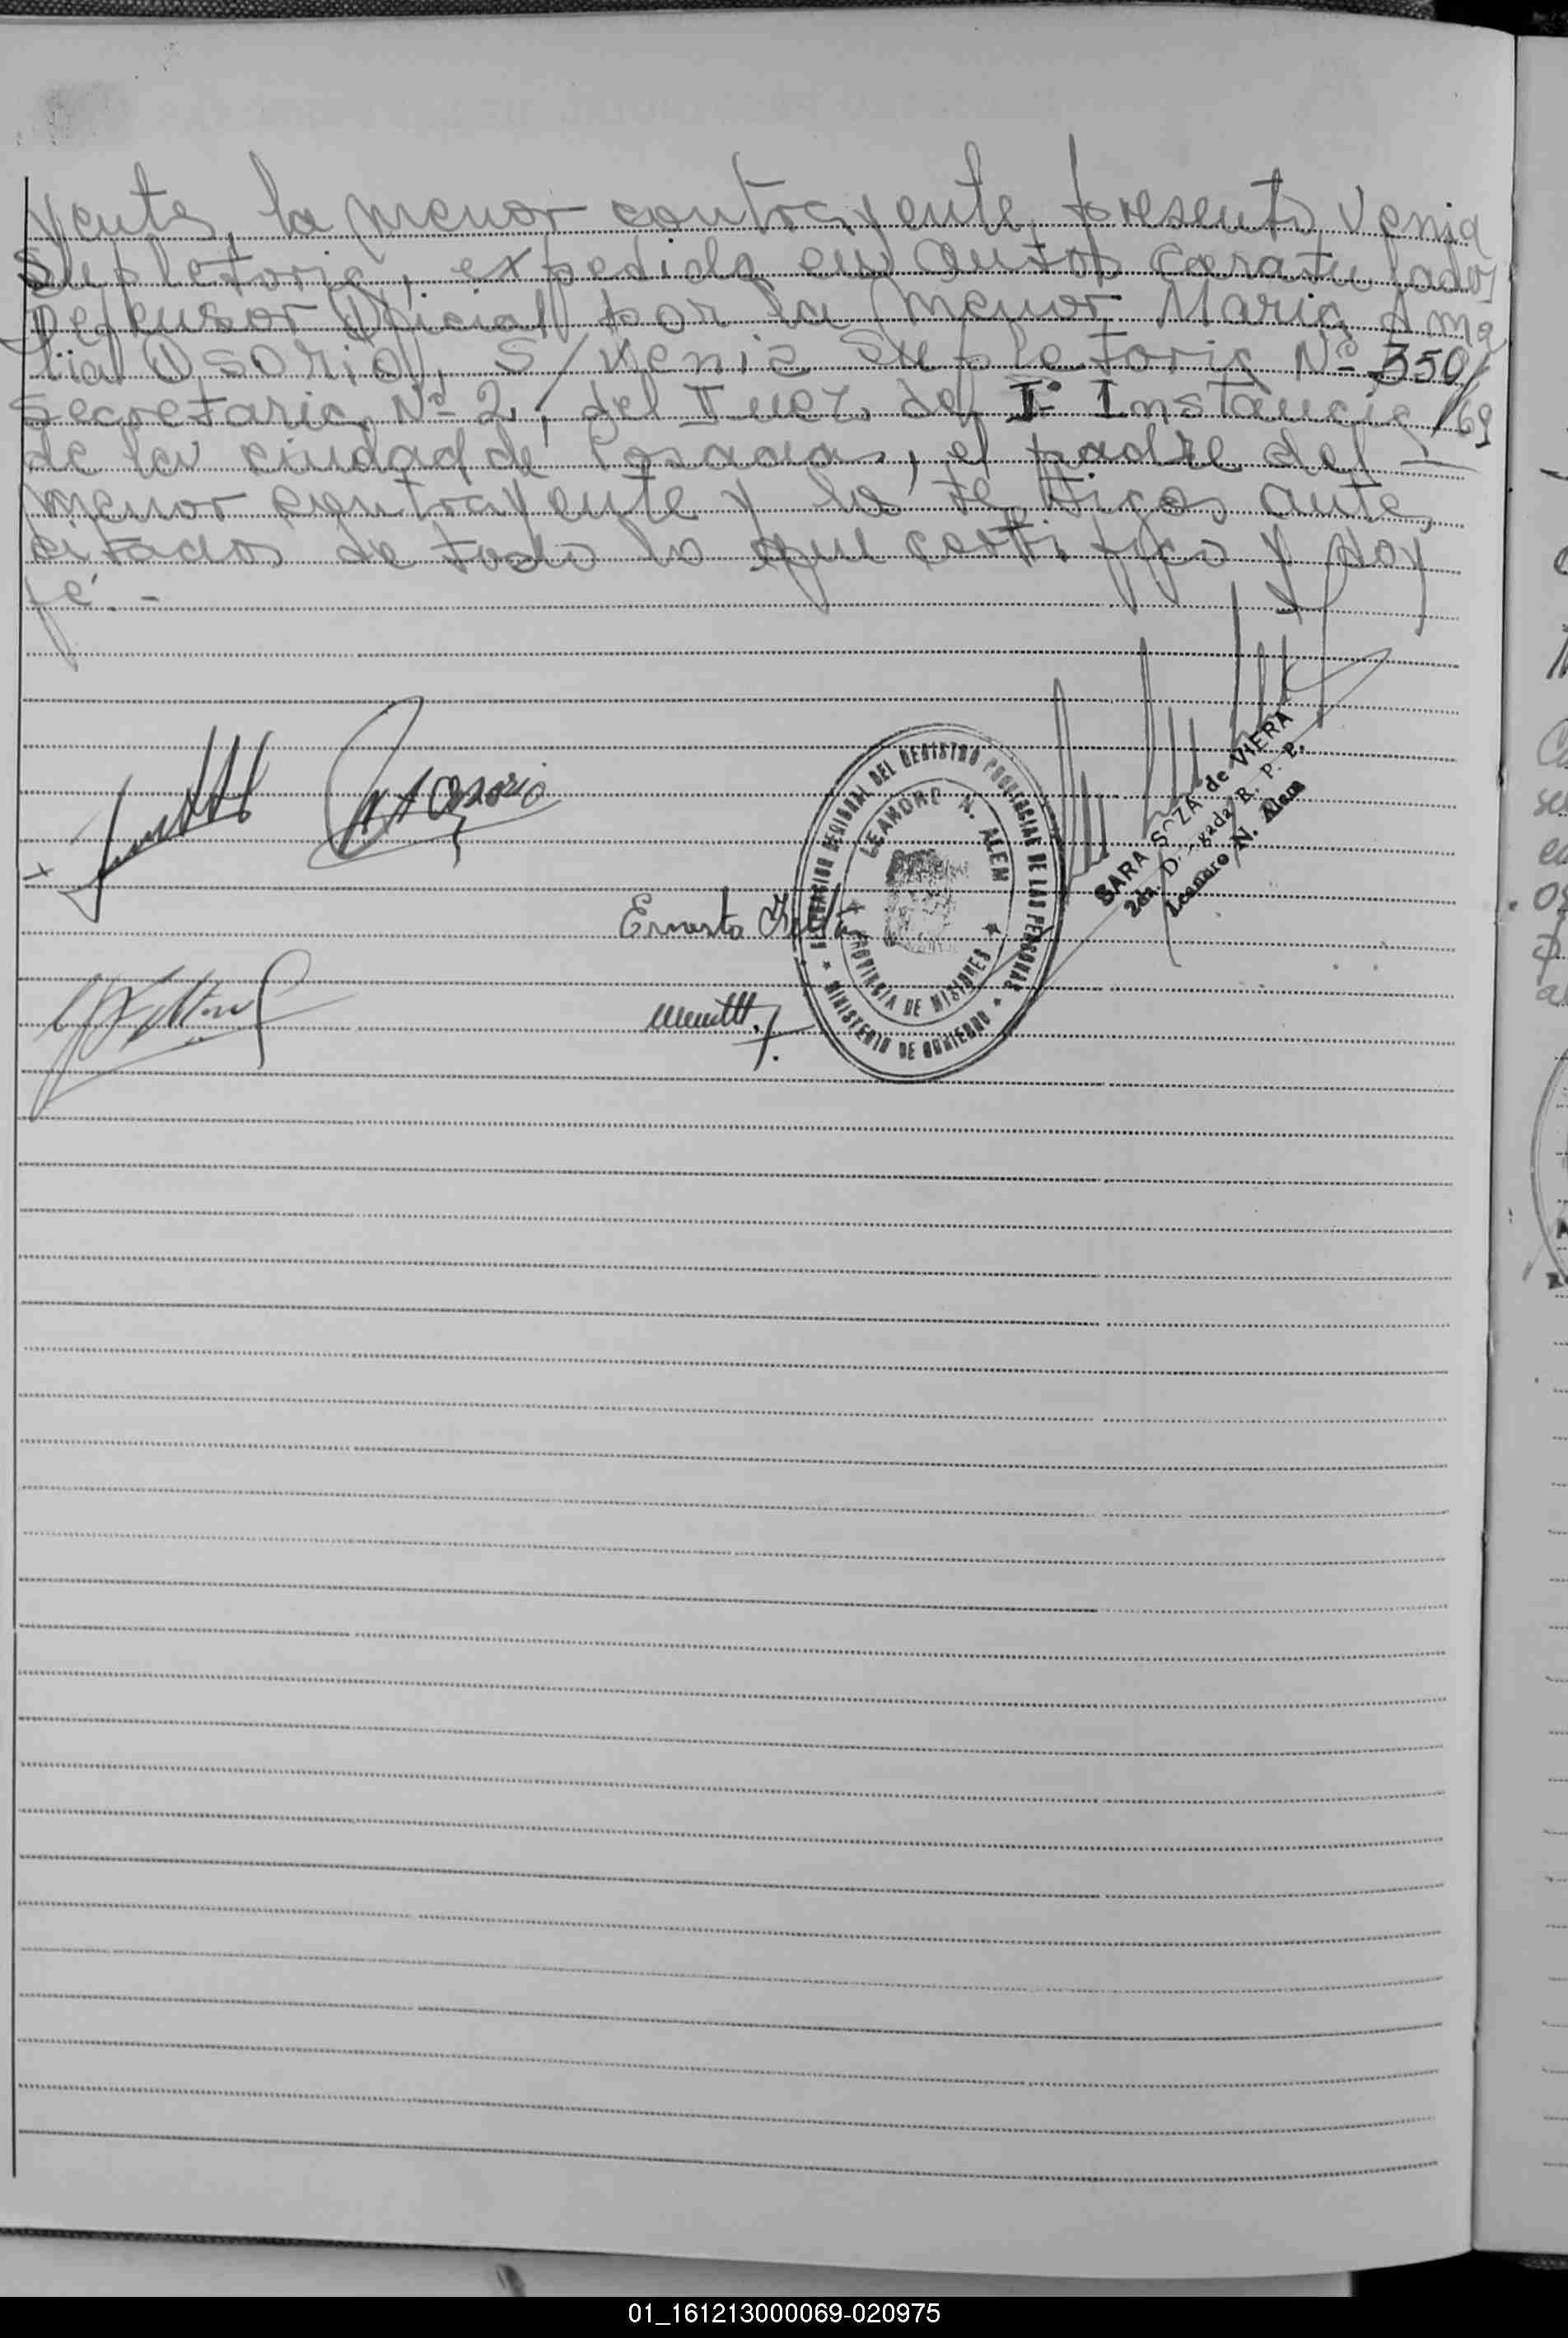 yente, la menor contrayente presentó venia
supletoria, expedida en autos caratulados
Defensor Oficial por la menor Maria Ama
lia Osorio, s/venia supletoria Nº 350/
Secretaria Nº 2, del Juez de Iº Instancia /69
de la ciudad de Posadas, el padre del
menor contrayente y los testigos ante,
citados de todo lo que certifico y doy
fé.-
Osorio
DELEGACION REGIONAL DEL REGISTRO PROVINCIAL DE LAS PERSONAS
LEANDRO N. ALEM
PROVINCIA DE MISIONES
MINISTERIO DE GOBIERNO
SARA SOZA de VIERA
2da. Delegada R. P. P.
Leandro N. Alem
Ernesto
01_161213000069-020975